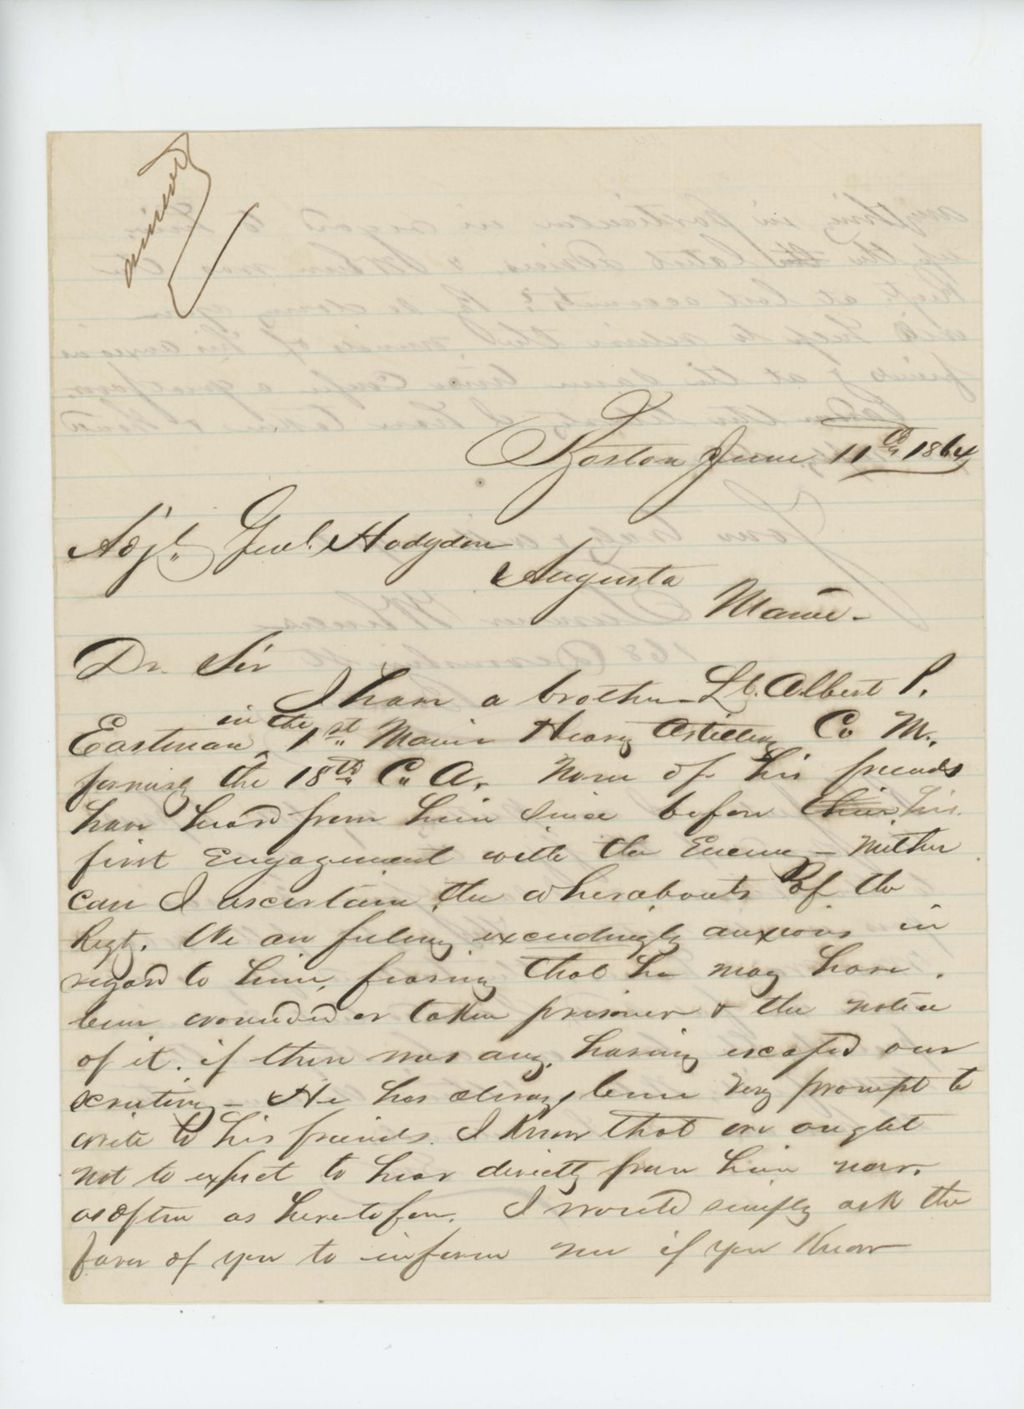 answered
Boston June 11th 1864
Adjt. Genl. Hodgdon
Augusta
Maine.
Dr. Sir
I have a brother Lt. Albert P.
Eastman, in the 1st. Maine Heavy Artillery Co M.,
formerly the 18th Co A. None of his friends
have heard from him since before their his
first Engagement with the Enemy – neither
can I ascertain the whereabouts of the
Regt. We are feeling exceedingly anxious in
regard to him, fearing that he may have
been wounded or taken prisoner & the notice
of it, if there was any, having escaped our
scrutiny – He has always been very prompt to
write to his friends. I know that we ought
not to expect to hear directly from him now,
as often as heretofore. I would simply ask the
favor of you to inform me if you know